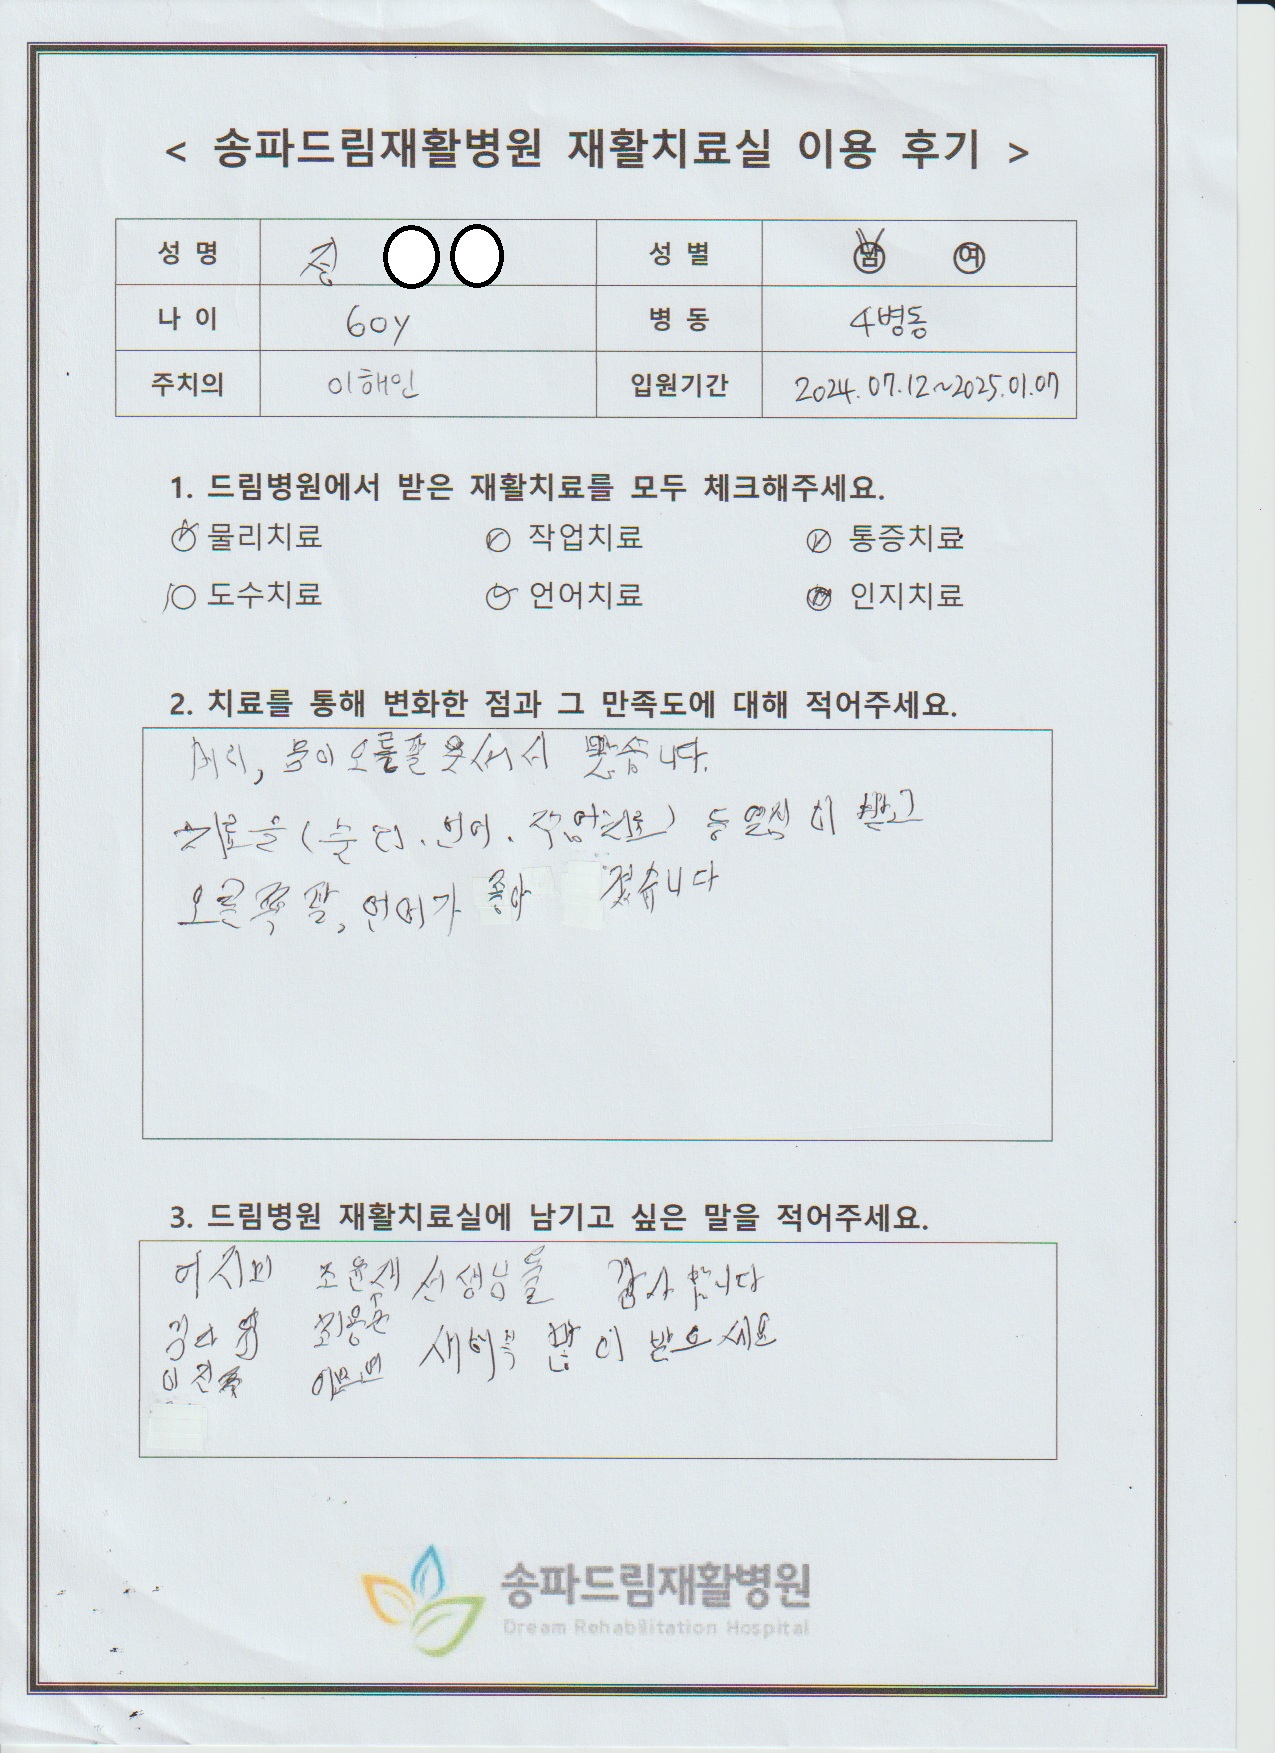 < 송파드림재활병원 재활치료실 이용 후기 >
성 명 성 별 남 여
나 이 60y 병 동 4병동
주치의 이해인 입원기간 2024.07.12~2025.01.07
1. 드림병원에서 받은 재활치료를 모두 체크해주세요.
물리치료 작업치료 통증치료
도수치료 언어치료 인지치료
2. 치료를 통해 변화한 점과 그 만족도에 대해 적어주세요.
머리, 몸이 오른팔 못써서 습니다.
치료을 ( . 언어 . 작업치료) 등 열심히 받고
오른쪽 팔, 언어가 좋아 졌습니다
3. 드림병원 재활치료실에 남기고 싶은 말을 적어주세요.
어지미 조윤재 선생님들 감사합니다
새해복 많이 받으세요
송파드림재활병원
Dream Rehabilitation Hospital